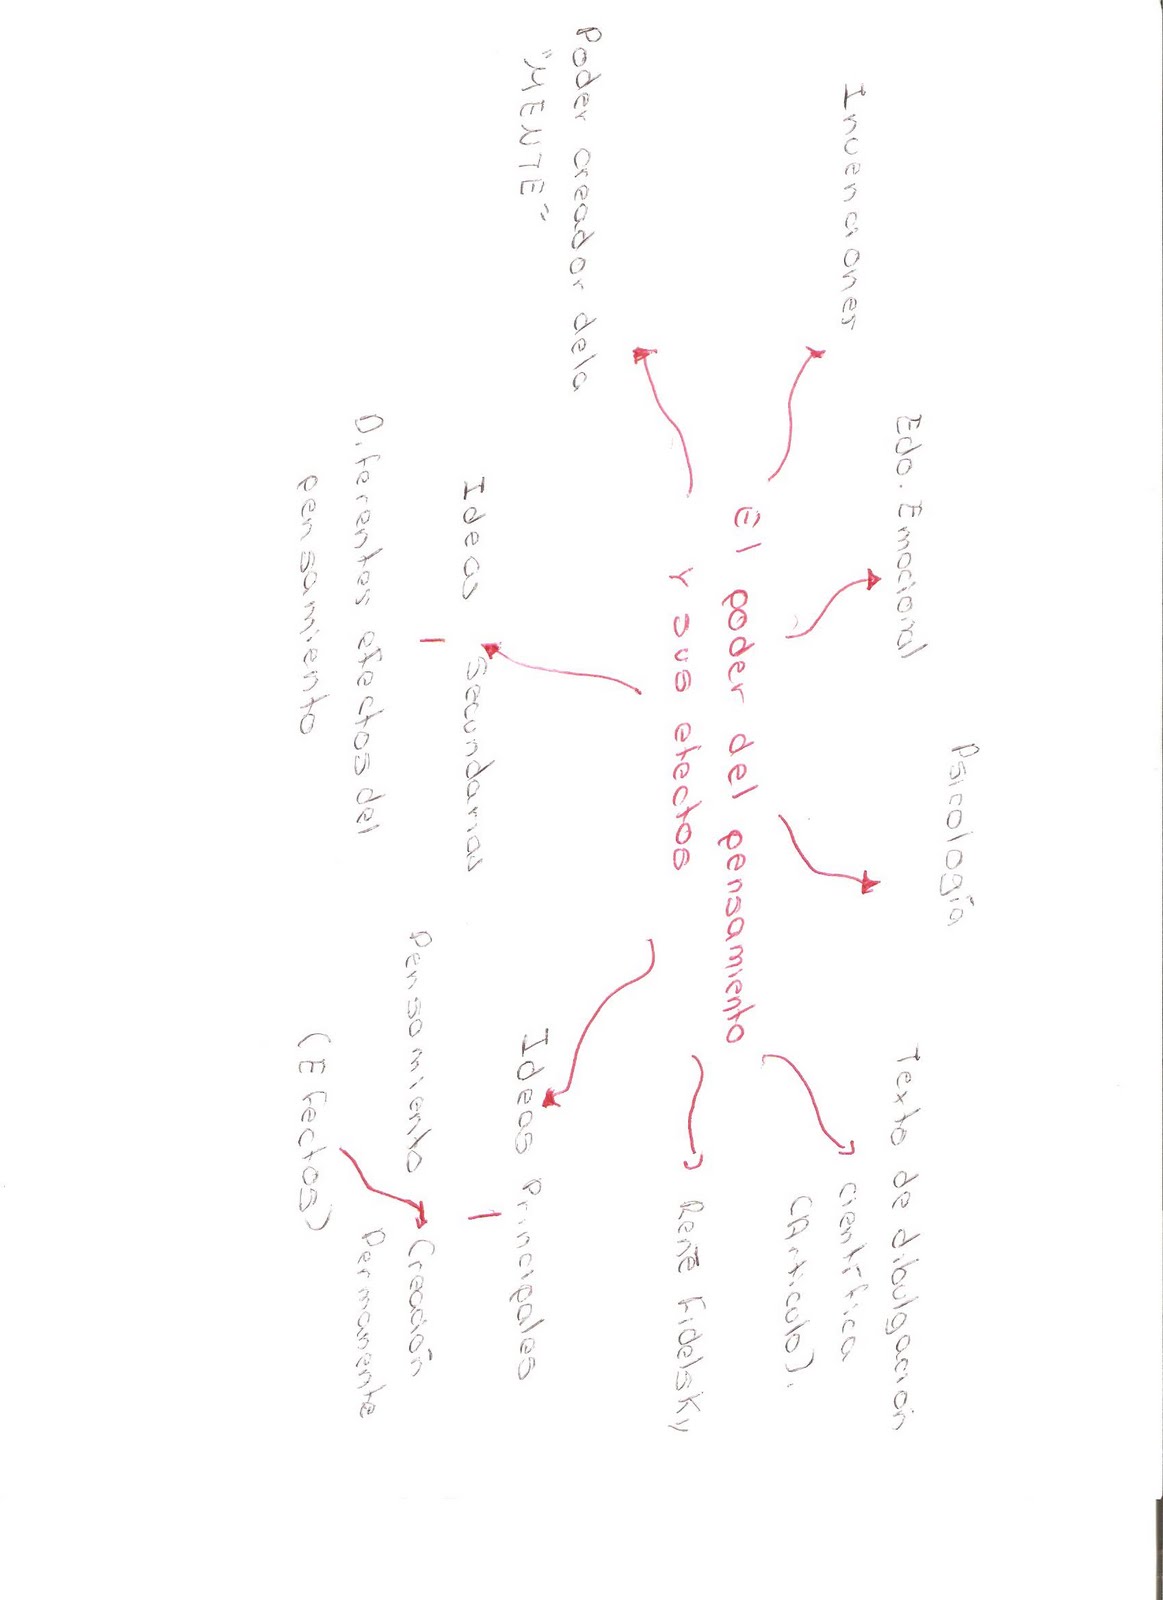 Psicología
Edo. Emocional
Texto de dibulgación
científica
(Articulo).
Invenciones
El poder del pensamiento
y sus efectos
René Fidelsky
Poder creador dela
"MENTE"
Ideas Secundarias
Diferentes efectos del
pensamiento
Ideas Principales
Pensamiento
Creación
Permanente
(Efectos)